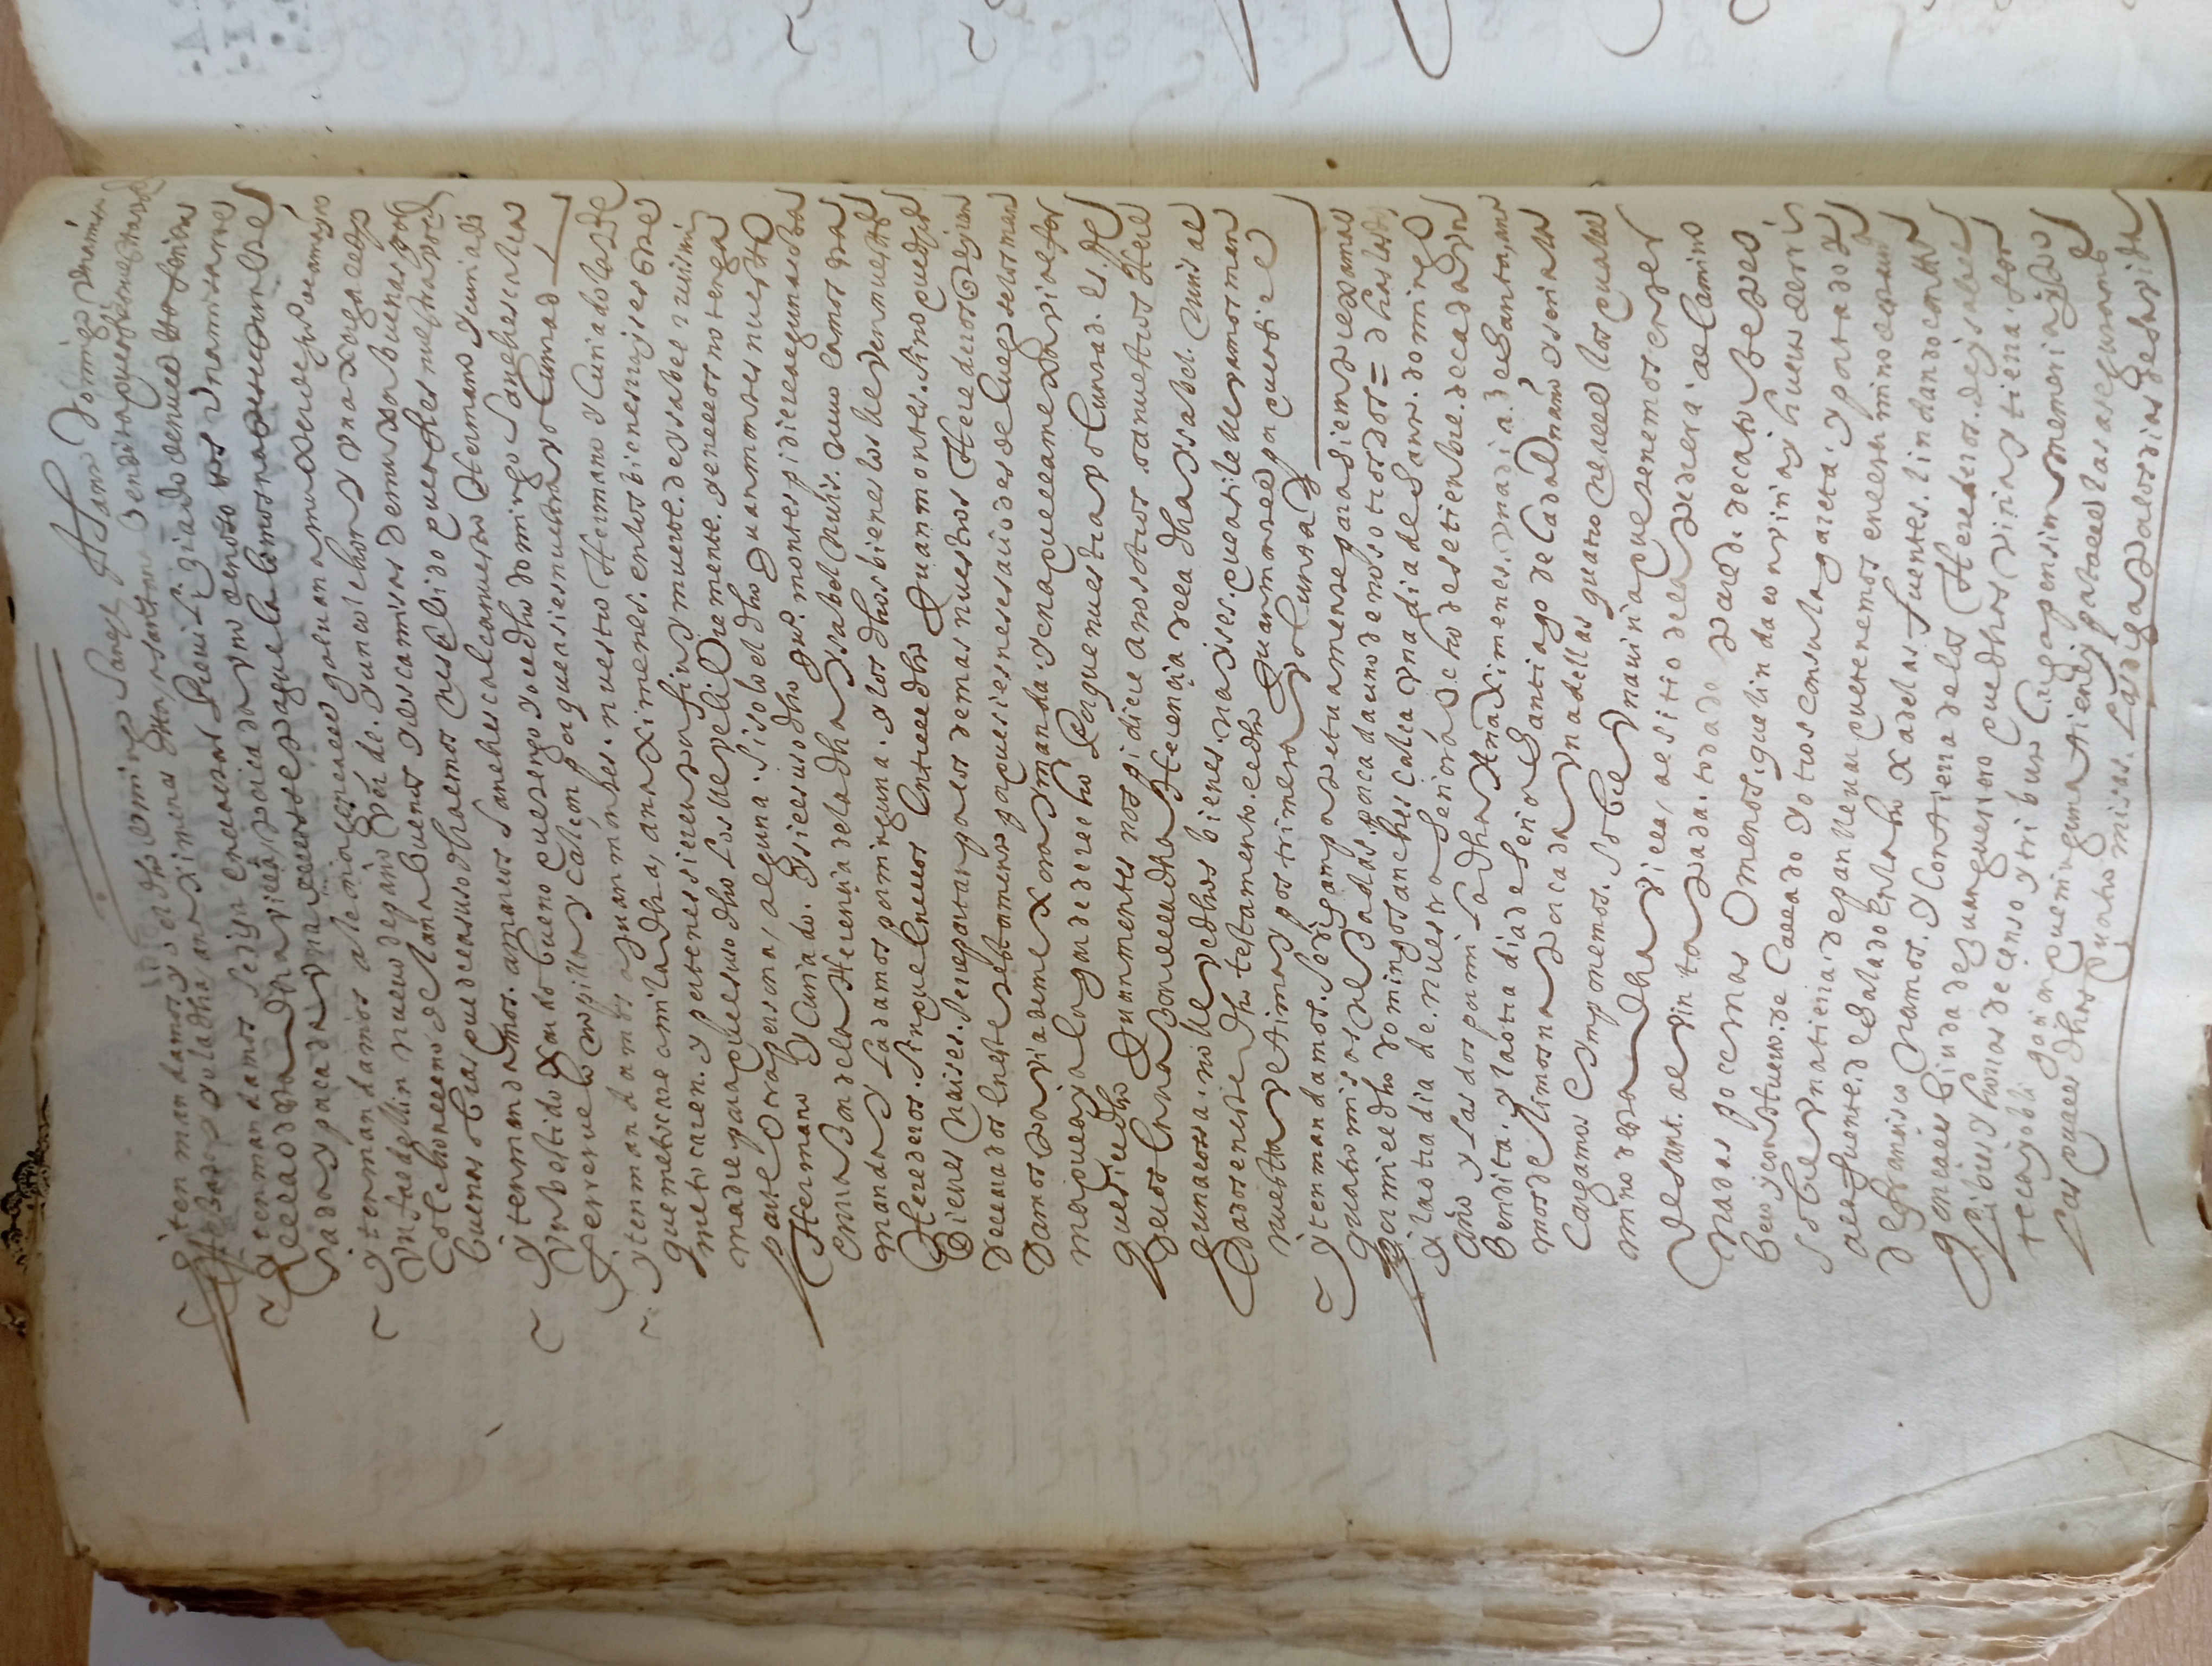 yten mandamos yo el dho domingo Sanches A Santo Domingo una misa
Resada y yo la dha ana ximenes otra a santa ana bendita que asi es nuestra vol
yten mandamos se diga en el altar Previlixiado de nuestra señora
de la o desta dha villa por cada uno de nosotros una misa re
sada y por cada una dellas se pague la limosna
yten mandamos a leonor goncales galvana muxer de juº de amaya
un faldellin nuevo de paño verde. y un colchon y una xerga el dho
colchon lleno de lana buenos y dos camisas de muxer buenas por
buenas obras que de la suso dha emos resebido que asi es nuestra vol
yten mandamos. a marcos Sanches calca nuestro Hermano y cuñado
un bestido pardo bueno que tengo yo el dho domingo Sanches calca
ferreruelo ropilla y calçon por que asi es nuestra voluntad
yten mandamos a juan montes. nuestro Hermano y Cuñado la pte
que me tocare a mi la dha, ana Ximenes. en los bienes rayses que
me tocaren. y pertenessieren por fin y muerte. de ysabel rruis mi
madre para que el suso dho los lleve libremente. y en ellos no tenga
parte otra persona, alguna. si solo el dho juan montes nuestro
Hermano y Cuñado. y si el suso dho juº. montes pidiere alguna cosa
en rrason de la Herençia de la dha ysabel Ruis. revocamos esta
manda y la damos por ninguna. y los dhos bienes los lleven nuestros
Herederos. sin que en ellos entre el dho juan montes. sino que dhos
Bienes Raises. se repartan por los demas nuestros Herederos que yran
declarados en este testamento por que si es nesesario desde luego se los man
damos por via de mexora y manda. y en aquella mexor via e for
ma que aya lugar de derecho Porque nuestra voluntad. es. de
que si el dho juan montes nos pidiere a nosotros o a nuestros Here
deros en rrason de la dha Herençia de la dha ysabel. ruis al
guna cossa. no lleve dhos bienes. rayses. que asi le llevamos man
dados en este dho testamento. el dho juan montes por que asi es
nuestra ultima y postrimera voluntad
yten mandamos. se digan perpetuamente para siempre xamas
quatro misas resadas. por cada uno de nosotros dos = dhas las dos
por mi el dho domingo sanches calca una dia de Santo. domingo
y la otra dia de. nuestra señora ocho de setienbre. de cada un
año y las dos por mi la dha Ana Ximenes. una dia. de Santa, ana
bendita. y la otra dia de señor Santiago de cada un año y señala
mos de limosna por cada una dellas quatro reales los quales
cargamos e ymponemos. sobre una viña que tenemos en ter
mino desta dha villa, al sitio de la Pedrera. al camino
de sant. al vin ta pada. toda de pared. de catorse peo
nadas poco mas o menos. que linda con viña y huerto
y con Huerto. de Callado y otros con su lagareta. y
sobre una tierra. de pan llevar que tenemos en el termino desta villa
a la fuente. de Salado en la hoxa de las fuentes. lindando con tierra
de françisco Ramos. y con tierra de los Herederos. de ysabel
gonçales biuda de juan guerrero que dhas viña y tierra. son
Libres y horras de çenso y tributo carga pension memoria ypo
teca y obligaçion que ninguna tiene y por tales las aseguramos
Las quales dhas quatro misas. las diga por los dias de su vida